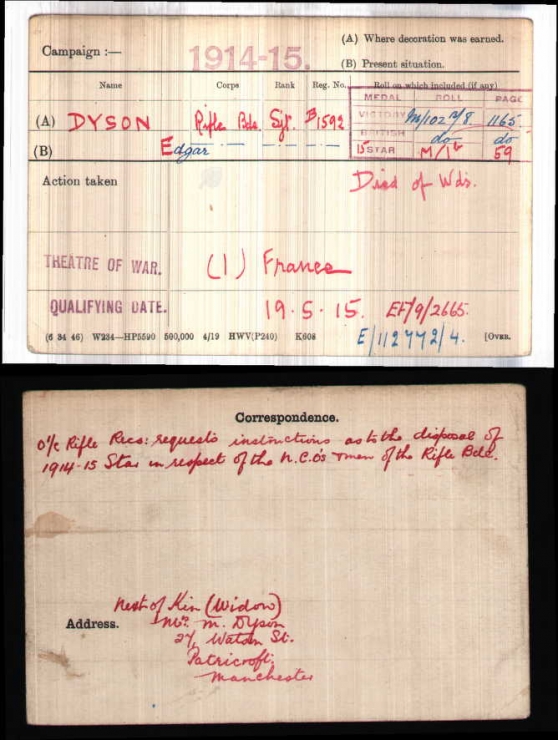 Campaign :—
1914-15.
(A) Where decoration was earned.
(B) Present situation.
Name Corps Rank Reg. No. Roll on which included (if any)
MEDAL ROLL PAGE
(A) DYSON Rifle Bde. Sjt. B1592 VICTORY M/102 B/8 1165
BRITISH do do
(B) Edgar — " — — " — 15 STAR M/1 B 59
Action taken Died of Wds.
THEATRE OF WAR. (1) France
QUALIFYING DATE. 19.5.15. EF/9/2665.
(6 34 46) W234—HP5590 500,000 4/19 HWV(P240) K608 E/112772/4. [OVER.
Correspondence.
O/c Rifle Recs: requests instructions as to the disposal of
1914-15 Star in respect of the N.C.O's & men of the Rifle Bde.
Next of Kin (Widow)
Address. Mrs. M. Dyson
27, Watson St.
Patricroft.
Manchester